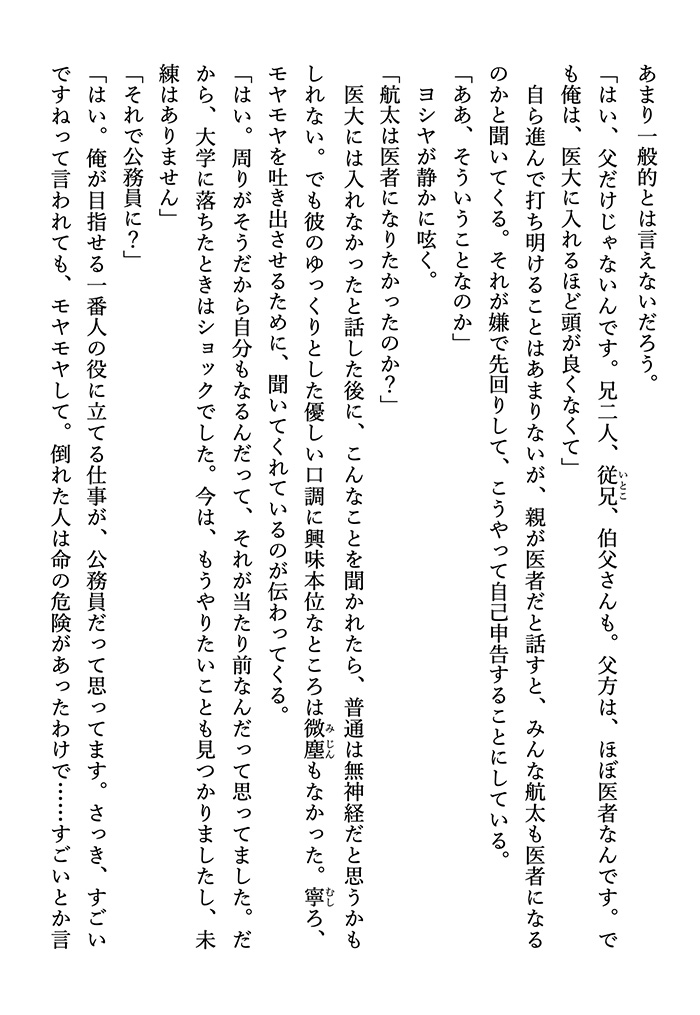 あまり一般的とは言えないだろう。
「はい、父だけじゃないんです。兄二人、従兄、伯父さんも。父方は、ほぼ医者なんです。で
も俺は、医大に入れるほど頭が良くなくて」
自ら進んで打ち明けることはあまりないが、親が医者だと話すと、みんな航太も医者になる
のかと聞いてくる。それが嫌で先回りして、こうやって自己申告することにしている。
「ああ、そういうことなのか」
ヨシヤが静かに呟く。
「航太は医者になりたかったのか？」
医大には入れなかったと話した後に、こんなことを聞かれたら、普通は無神経だと思うかも
しれない。でも彼のゆっくりとした優しい口調に興味本位なところは微塵もなかった。寧ろ、
モヤモヤを吐き出させるために、聞いてくれているのが伝わってくる。
「はい。周りがそうだから自分もなるんだって、それが当たり前なんだって思ってました。だ
から、大学に落ちたときはショックでした。今は、もうやりたいことも見つかりましたし、未
練はありません」
「それで公務員に？」
「はい。俺が目指せる一番人の役に立てる仕事が、公務員だって思ってます。さっき、すごい
ですねって言われても、モヤモヤして。倒れた人は命の危険があったわけで……すごいとか言
いとこ
みじん
むし